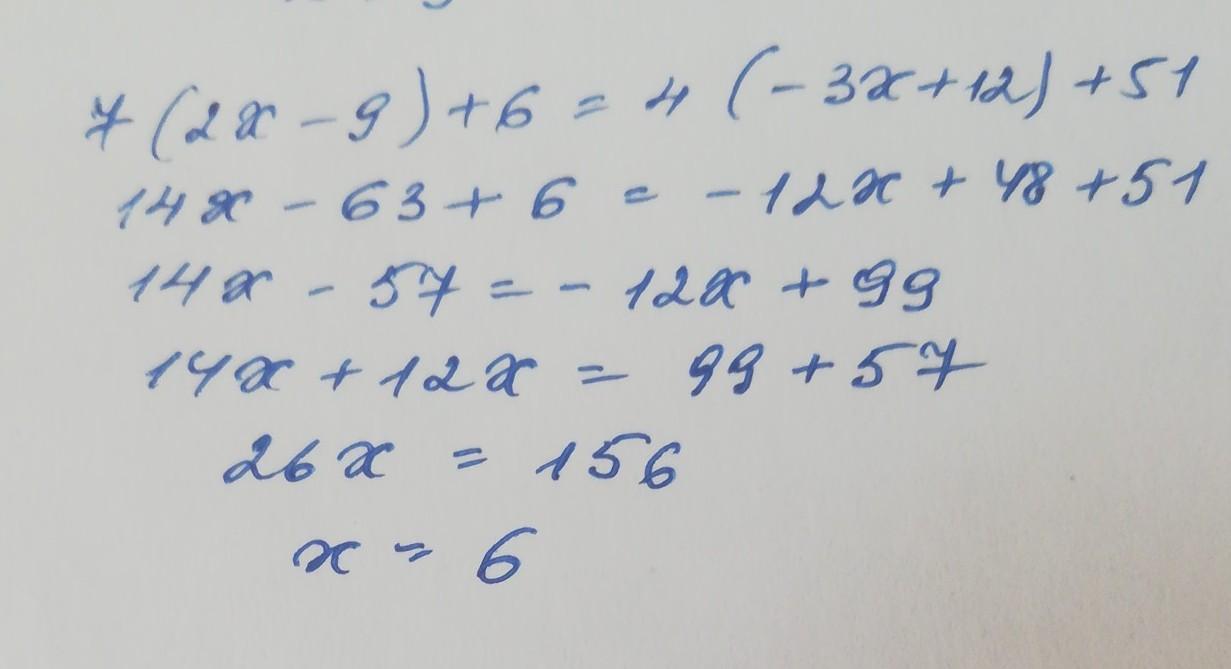 7(2x - 9) + 6 = 4(-3x + 12) + 51
14x - 63 + 6 = -12x + 48 + 51
14x - 57 = -12x + 99
14x + 12x = 99 + 57
26x = 156
x = 6